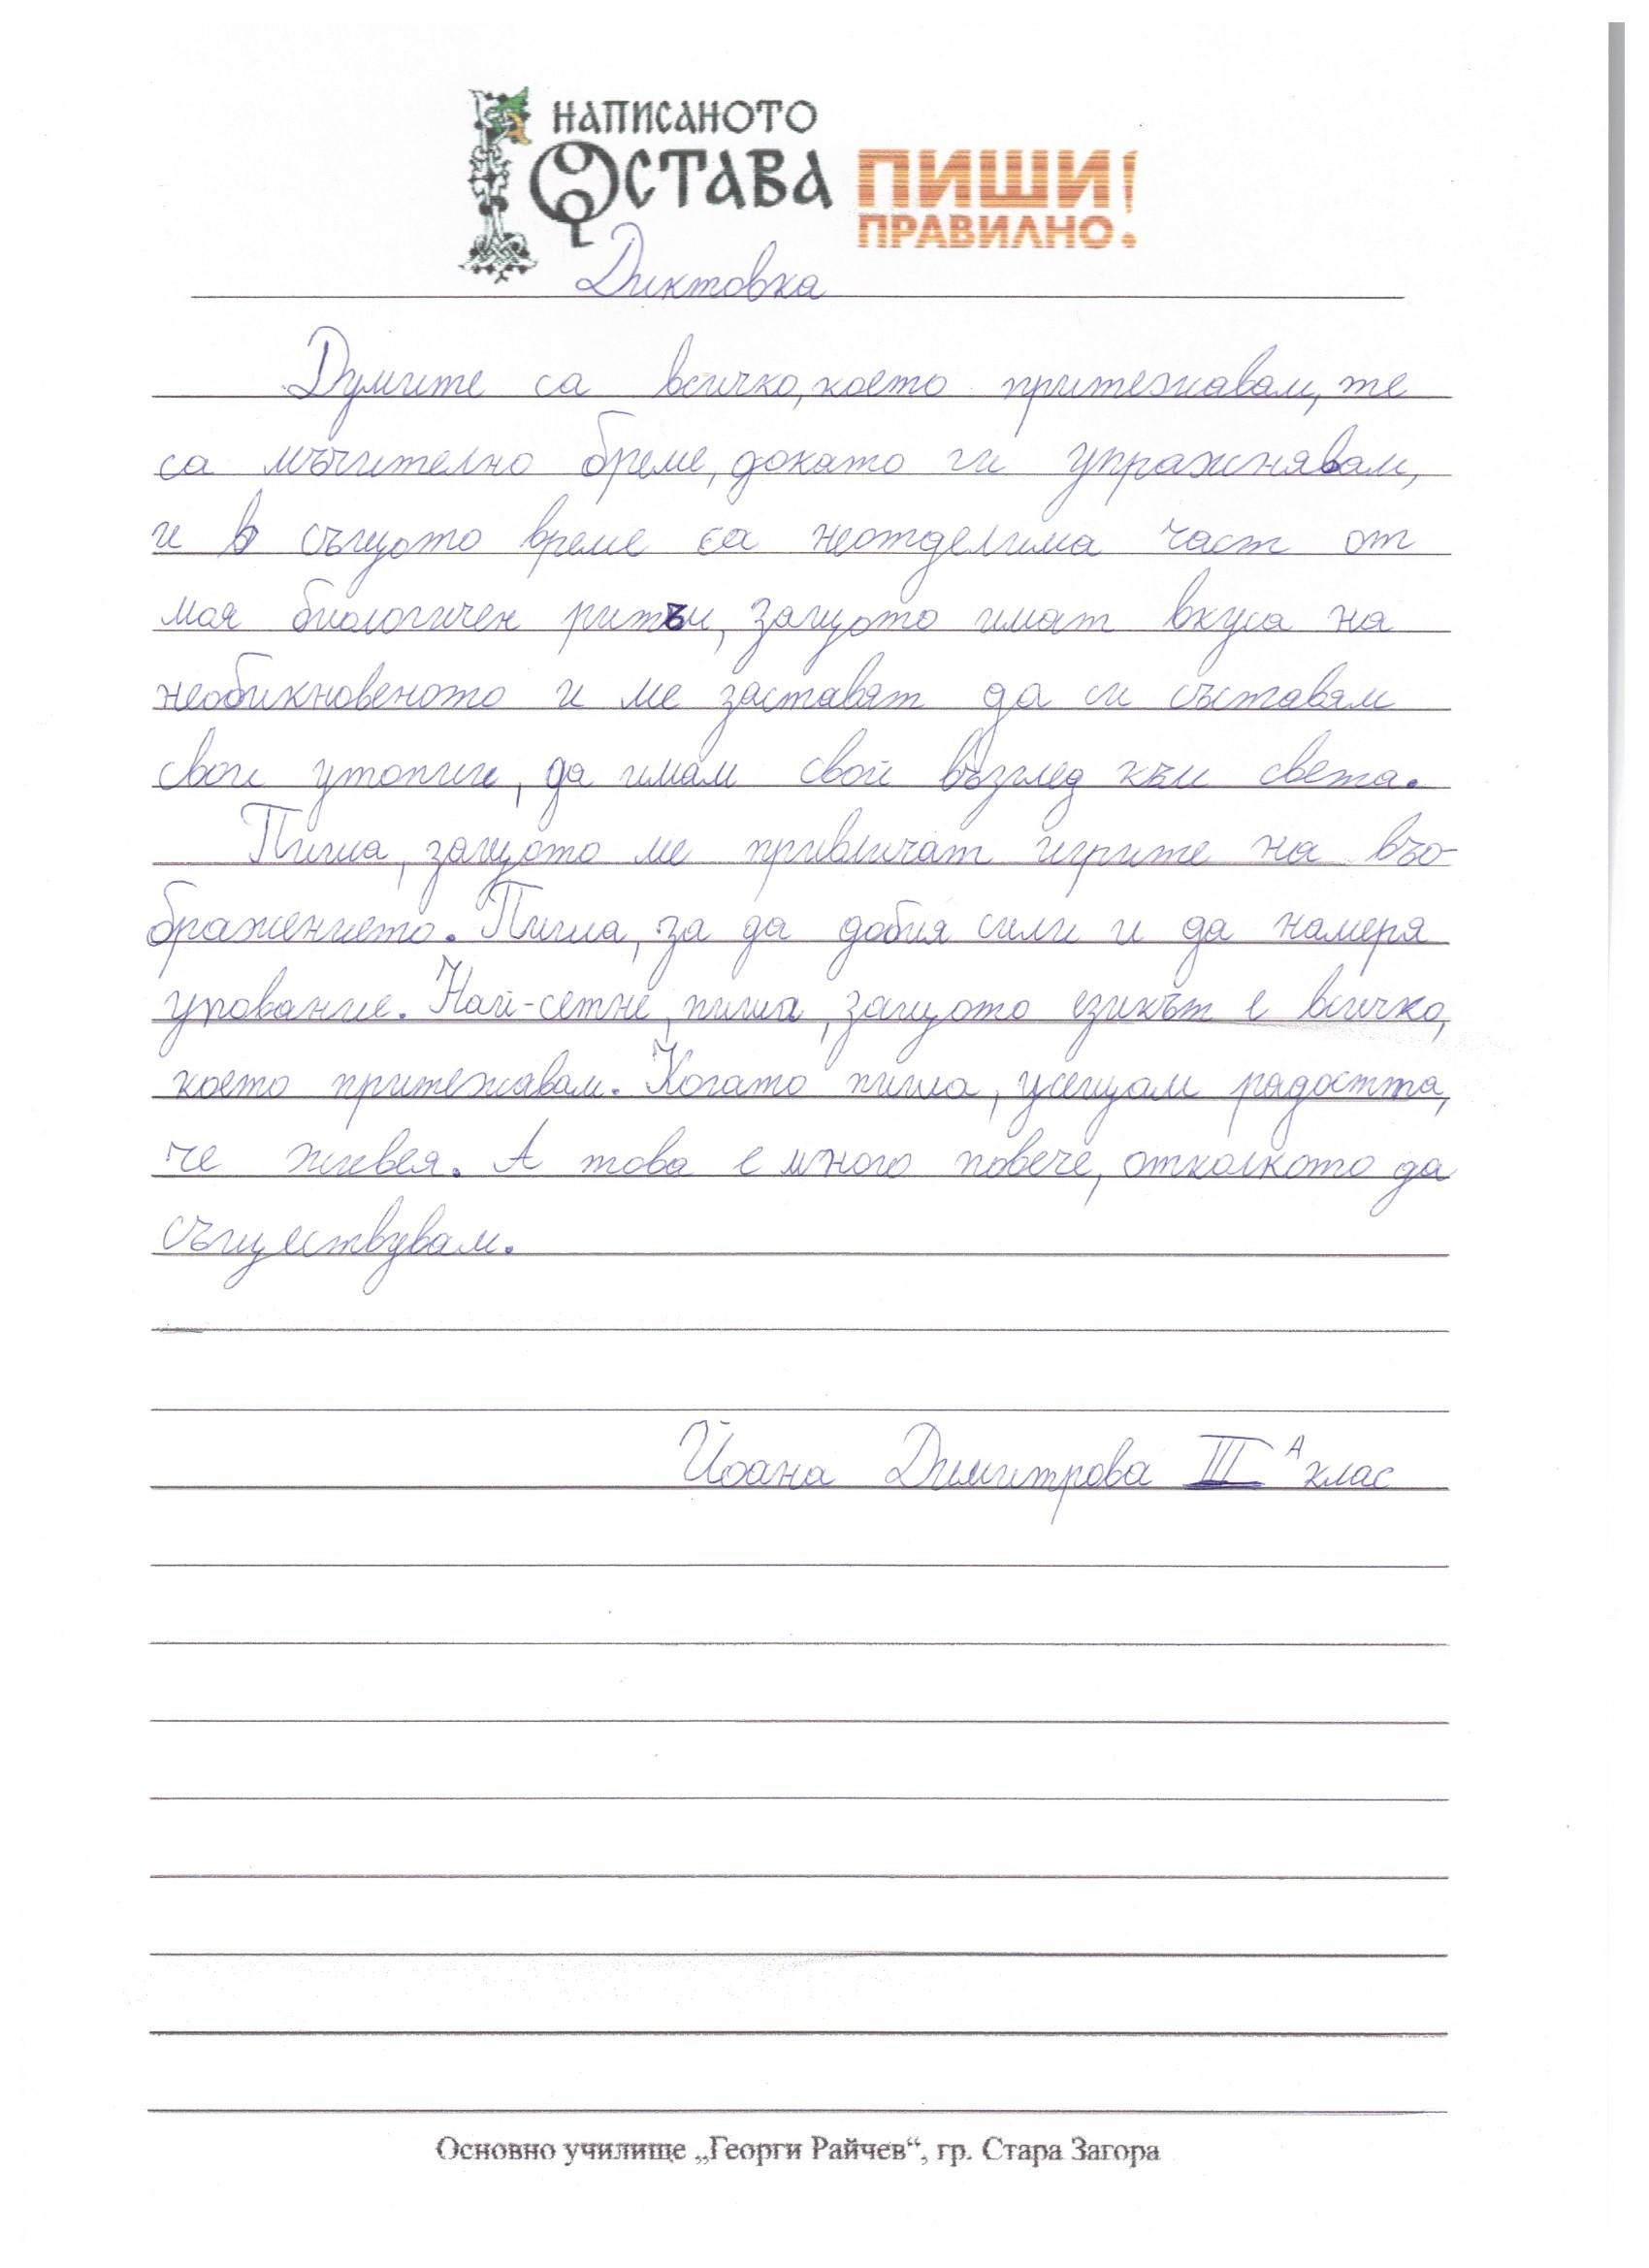 НАПИСАНОТО
ОСТАВА ПИШИ
ПРАВИЛНО!
Диктовка
Думите са всичко, което притежавам, те
са мъчително бреме, докато ги упражнявам,
и в същото време са неотделима част от
мая биологичен ритъм, защото имат вкуса на
необикновеното и ме заставят да си съставям
свои утопии, да имам свой възглед към света.
Пиша, защото ме привличат игрите на въо-
бражението. Пиша, за да добия сили и да намеря
упование. Най-сетне, пиша, защото езикът е всичко,
което притежавам. Когато пиша, усещам радостта,
че живея. А това е много повече, отколкото да
съществувам.
Йоана Димитрова III А клас
Основно училище „Георги Райчев“, гр. Стара Загора